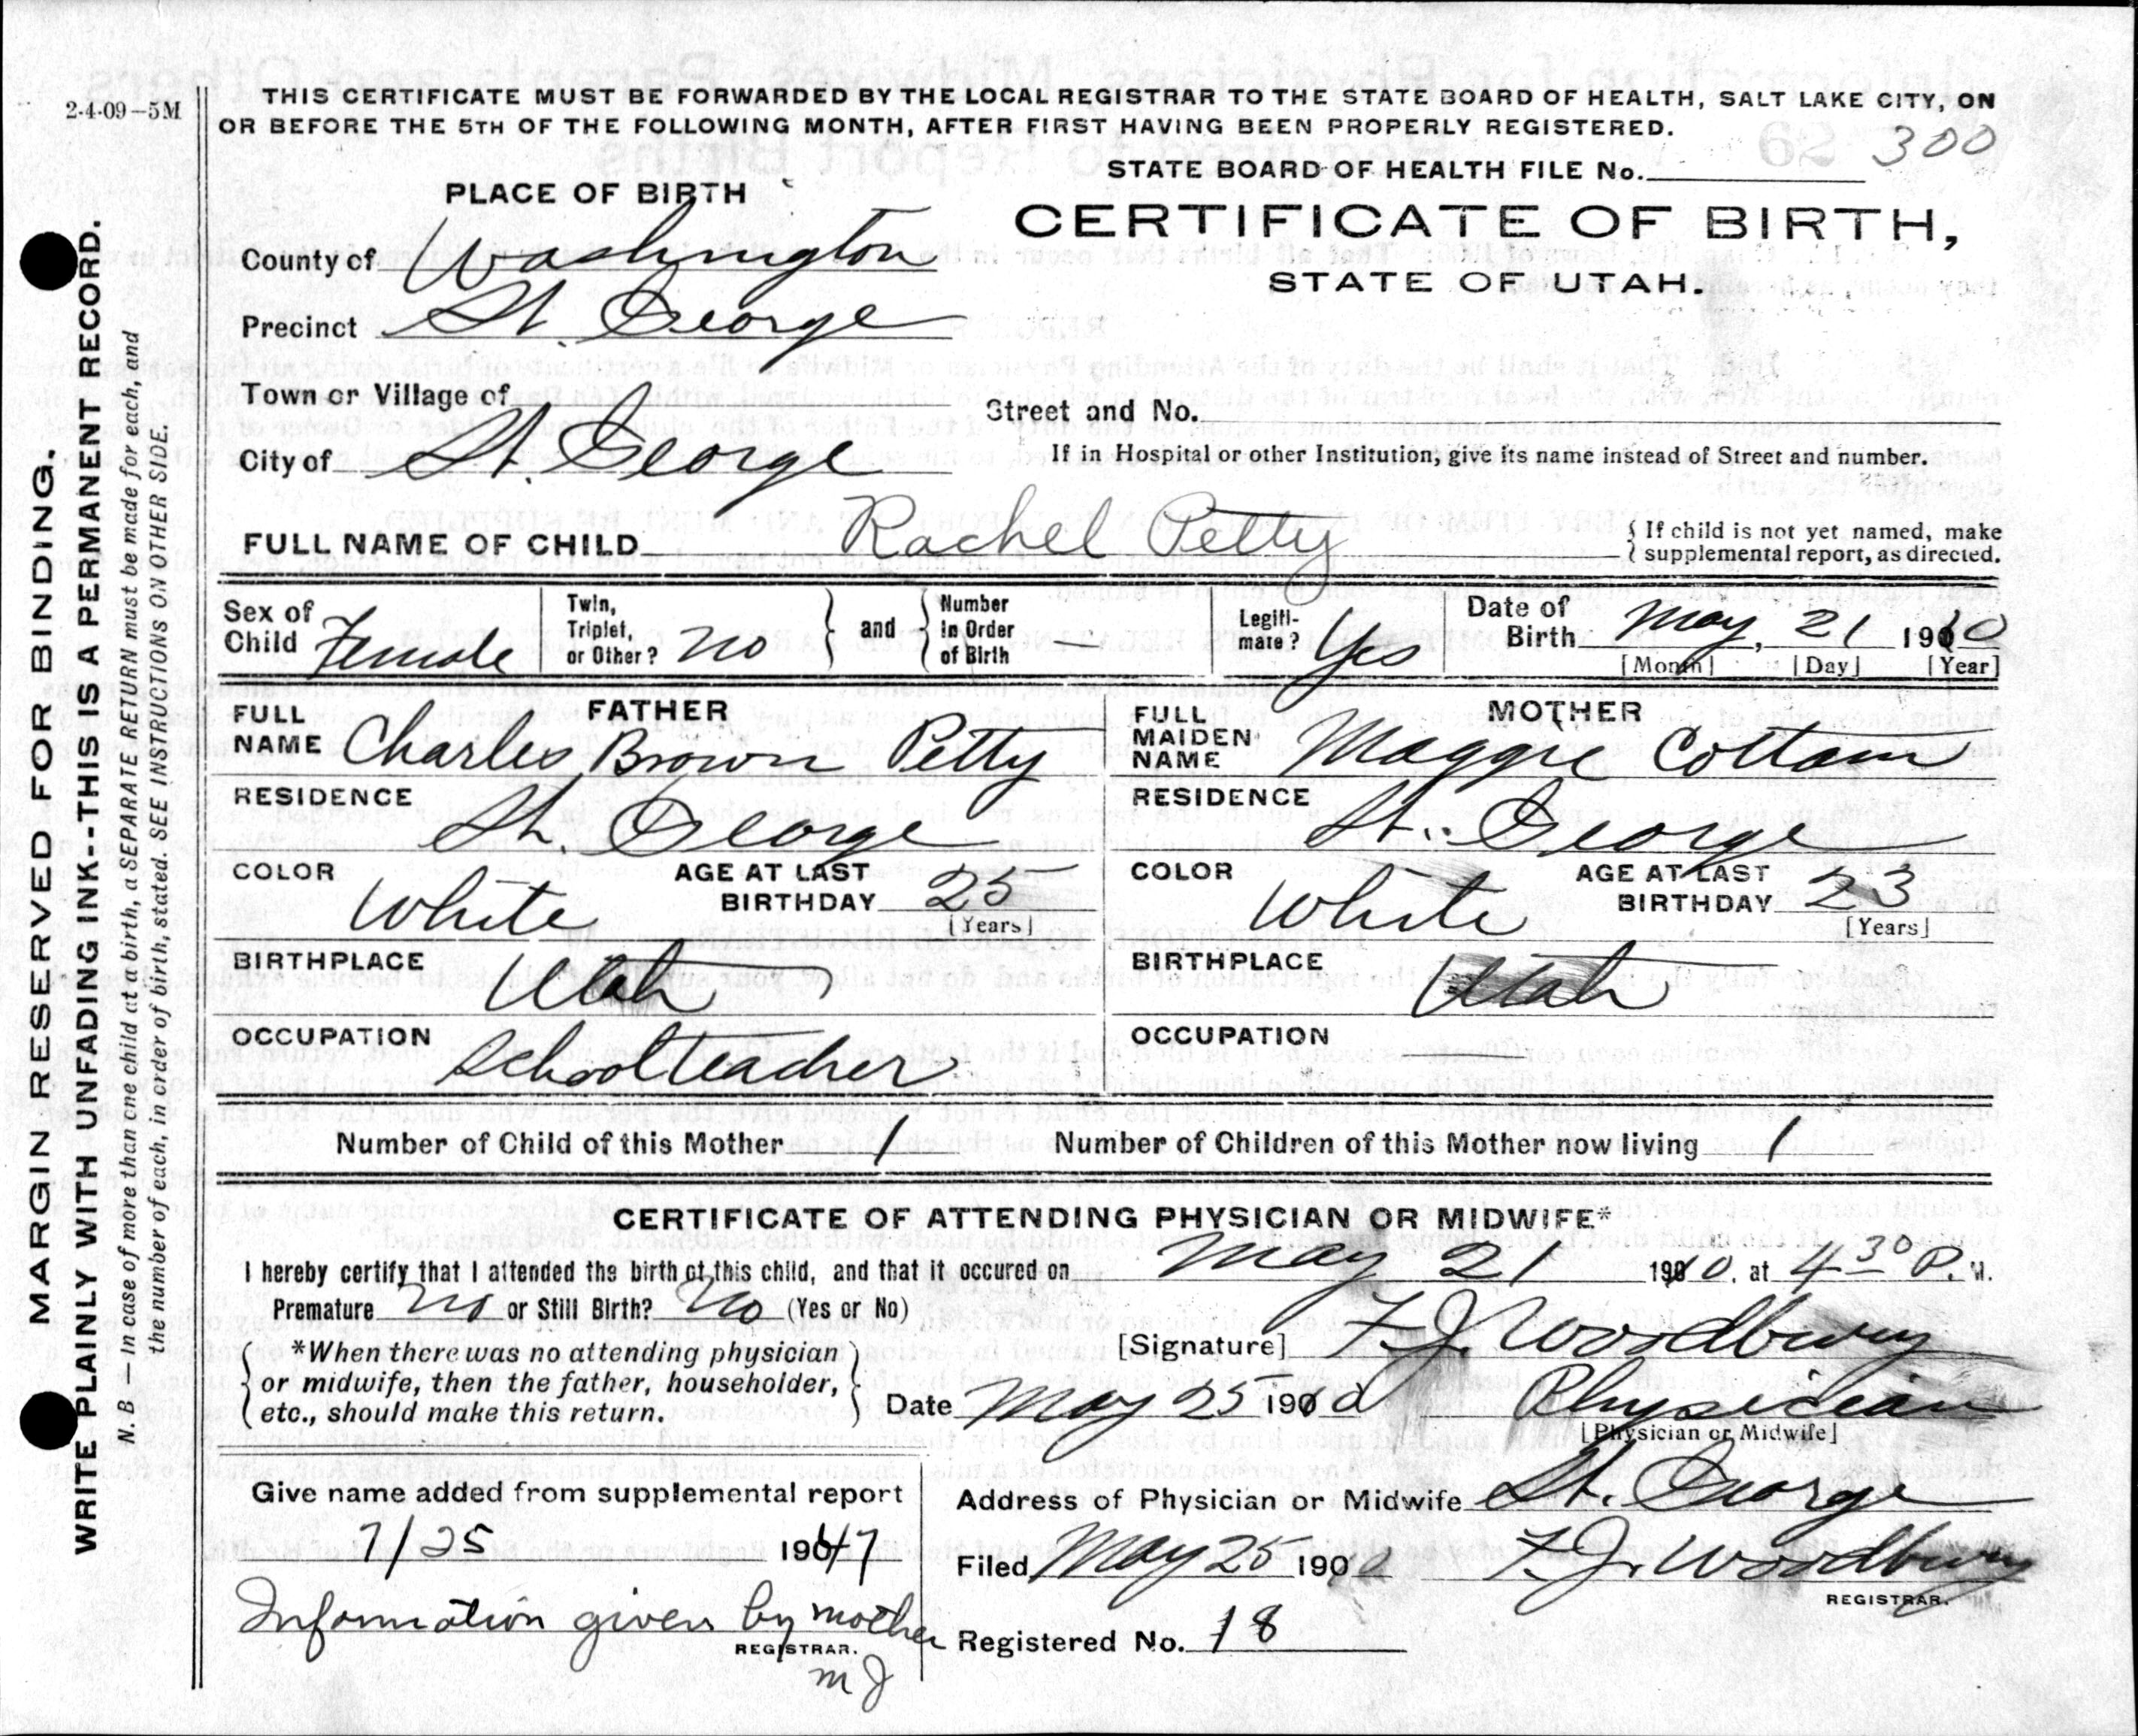 2-4-09–5M
THIS CERTIFICATE MUST BE FORWARDED BY THE LOCAL REGISTRAR TO THE STATE BOARD OF HEALTH, SALT LAKE CITY, ON
OR BEFORE THE 5TH OF THE FOLLOWING MONTH, AFTER FIRST HAVING BEEN PROPERLY REGISTERED.
STATE BOARD OF HEALTH FILE No. 300
PLACE OF BIRTH
CERTIFICATE OF BIRTH,
STATE OF UTAH.
County of Washington
Precinct St. George
Town or Village of
Street and No.
City of St. George
If in Hospital or other Institution, give its name instead of Street and number.
FULL NAME OF CHILD Rachel Petty
{ If child is not yet named, make
{ supplemental report, as directed.
Sex of Child Female
Twin, Triplet, or Other? no
} and {
Number in Order of Birth
Legiti-mate? Yes
Date of Birth May, 21 1910
[Month] [Day] [Year]
FATHER
FULL NAME Charles Brown Petty
RESIDENCE
St. George
COLOR White
AGE AT LAST BIRTHDAY 25
[Years]
BIRTHPLACE
Utah
OCCUPATION
Schoolteacher
MOTHER
FULL MAIDEN NAME Maggie Cottam
RESIDENCE
St. George
COLOR White
AGE AT LAST BIRTHDAY 23
[Years]
BIRTHPLACE
Utah
OCCUPATION
Number of Child of this Mother 1
Number of Children of this Mother now living 1
CERTIFICATE OF ATTENDING PHYSICIAN OR MIDWIFE*
I hereby certify that I attended the birth of this child, and that it occured on May 21 1910, at 4 30 P. M.
Premature No or Still Birth? No (Yes or No)
[Signature] F. J. Woodbury
*When there was no attending physician
or midwife, then the father, householder,
etc., should make this return.
Date May 25 1910 Physician
[Physician or Midwife]
Give name added from supplemental report
7/25 1947
Information given by mother
REGISTRAR.
MJ
Address of Physician or Midwife St. George
Filed May 25 1910 F. J. Woodbury
REGISTRAR.
Registered No. 18
MARGIN RESERVED FOR BINDING.
WRITE PLAINLY WITH UNFADING INK--THIS IS A PERMANENT RECORD.
N. B — In case of more than one child at a birth, a SEPARATE RETURN must be made for each, and
the number of each, in order of birth, stated. SEE INSTRUCTIONS ON OTHER SIDE.